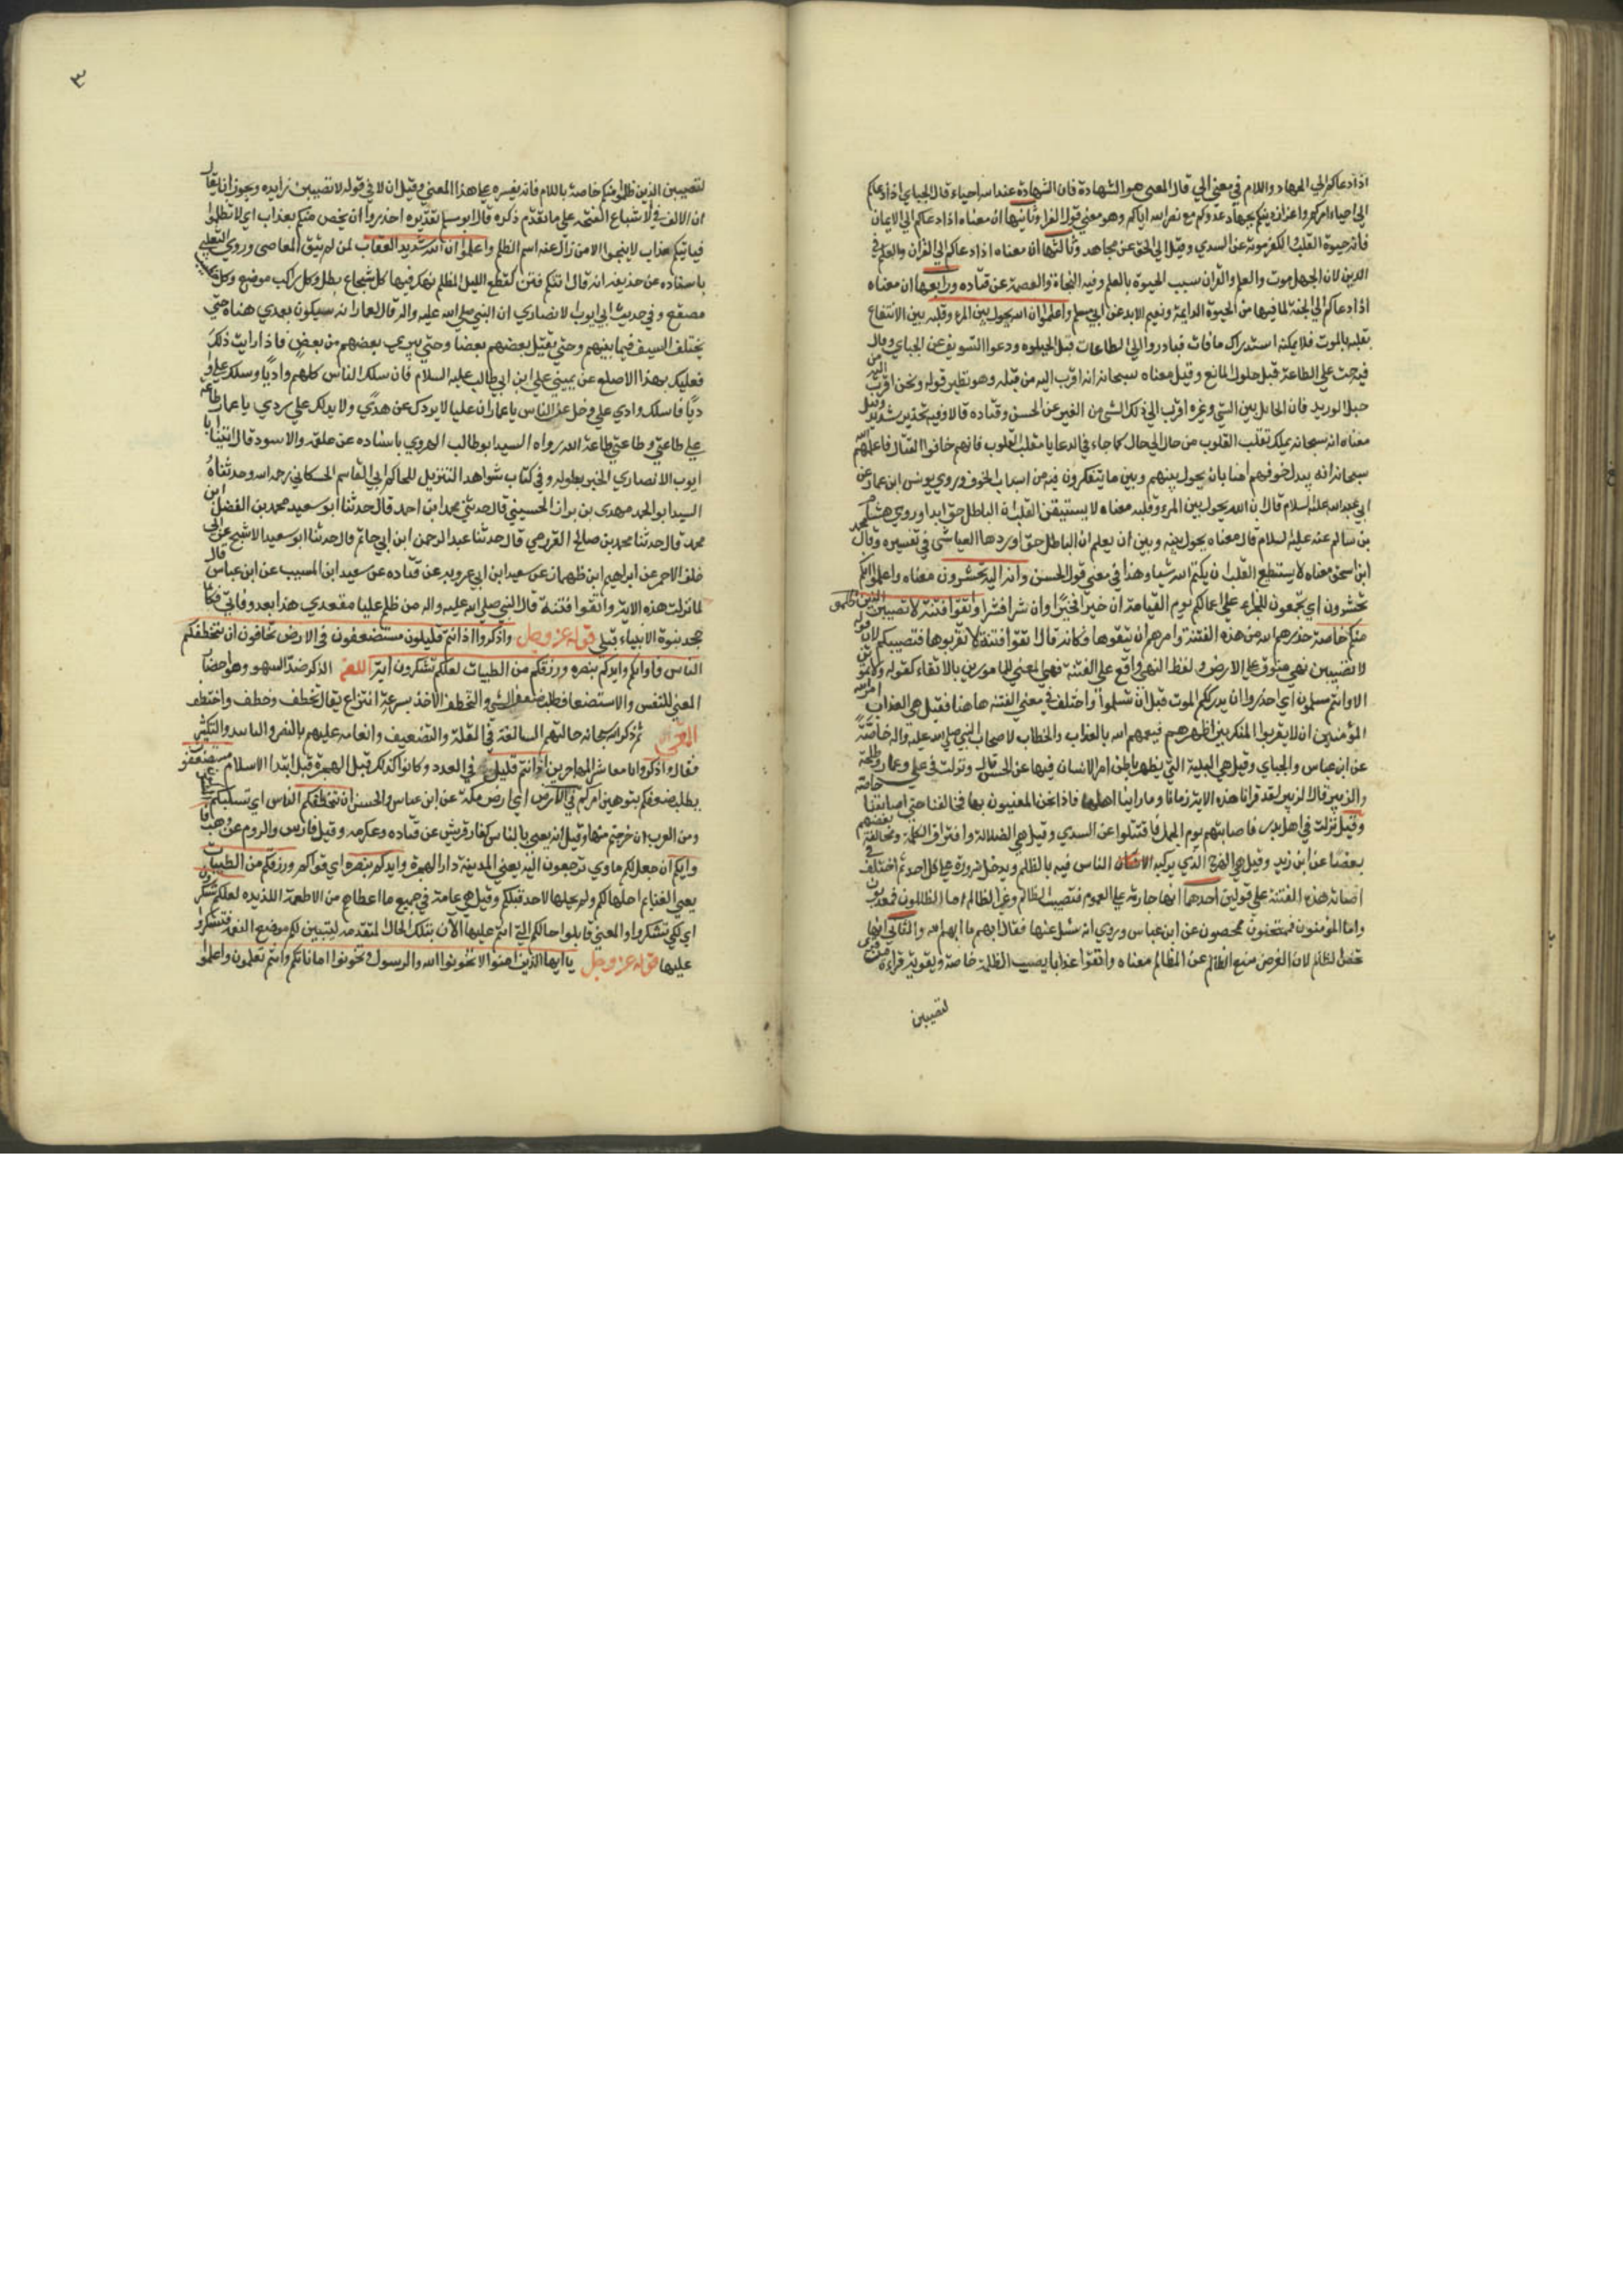 اذا دعاكم الي الجهاد واللام في معني الي قال المعني هو الشهادة فان الشهادة عند الله احياء قال الجبائي اذا دعاكم
الي احياء امركم واعزاز دينكم بجهاد عدوكم مع نصر الله اياكم وهو معني قول الفرا وثانيها ان معناه اذا دعاكم الي الايمان
فانه حيوة القلب والكفر موته عن السدي وقيل الي الحق عن مجاهد وثالثها ان معناه اذا دعاكم الي القران والعلم في
الدين لان الجهل موت والعلم والقران سبب الحيوة بالعلم وفيه النجاة والعصمة عن قتاده ورابعها ان معناه
اذا دعاكم الي الجنة لما فيها من الحيوة الدايمة ونعيم الابد عن ابي مسلم واعلموا ان الله يحول بين المرء وقلبه بين الانتفاع
بقلبه بالموت فلا يمكنه استدراك ما فات فبادروا الي الطاعات قبل الحيلوله ودعوا التسويف عن الجباي وقال
فيه حث علي الطاعة قبل حلول المانع وقيل معناه سبحانه انه اقرب اليه من قلبه وهو نظير قوله ونحن اقرب اليه من
حبل الوريد فان الحايل بين الشي وغيره اقرب الي ذلك الشي من الغير عن الحسن وقتاده قالا وفيه تحذير شديد وقيل
معناه انه سبحانه يملك تقلب القلوب من حال الي حال كما جاء في الدعا يا مقلب القلوب فانهم خافوا القتال فاعلمهم الله
سبحانه انه يبدل خوفهم امنا بان يحول بينهم وبين ما يتفكرون فيه من اسباب الخوف وروي يونس ابن عمار عن
ابي عبد الله عليه السلام قال ان الله يحول بين المرء وقلبه معناه لا يستيقن القلب ان الباطل حق ابدا وروي هشام
بن سالم عنه عليه السلام قال معناه يحول بينه وبين ان يعلم ان الباطل حق اوردها العياشي في تفسيره وقال محمد
ابن اسحق معناه لا يستطيع القلب ان يكتم الله شيا وهذا في معني قول الحسن وانه اليه تحشرون معناه واعلموا انكم
تحشرون اي تجمعون للجزاء علي اعمالكم يوم القيامة ان خيرا فخيرا وان شرا فشرا واتقوا فتنة لا تصيبن الذين ظلموا
منكم خاصة حذرهم الله من هذه الفتنة وامرهم ان يتقوها وكانه قال اتقوا فتنة لا تقربوها فتصيبكم لان قوله
لا تصيبن نهي مسوق علي الامر ولفظ النهي واقع علي الفتنة فهي المعني للمامورين بالاتقاء كقوله ولا تموتن
الا وانتم مسلمون اي احذروا ان يدرككم الموت قبل ان تسلموا واختلف في معني الفتنة هاهنا فقيل هي العذاب امر الله
المؤمنين ان لا يقربوا المنكر بين اظهرهم فيعمهم الله بالعذاب والخطاب لاصحاب النبي صلي الله عليه واله خاصة
عن ابن عباس والجباي وقيل هي البلية التي يظهر باطن امر الانسان فيها عن الحسن قال ونزلت في علي وعمار وطلحة
والزبير قال الزبير لقد قرانا هذه الاية زمانا وما راينا اهلها فاذا نحن المعنيون بها فخالفنا حتي اصابتنا خاصة
وقيل نزلت في اهل بدر خاصة فاصابتهم يوم الجمل فاقتتلوا عن السدي وقيل هي الضلالة وافتراق الكلمة ومخالفة بعضهم
بعضا عن ابن زيد وقيل هي الهرج الذي يركب الناس فيه بالظلم ويدخل ضرره علي كل احد ثم اختلف في
اصابة هذه الفتنة علي قولين احدها انها جارية علي العموم فتصيب الظالم وغير الظالم اما الظالمون فمعذبون
واما المؤمنون فممتحنون ممحصون عن ابن عباس وروي انه سئل عنها فقال ابهموا ما ابهم الله والثاني انها
تخص الظالم لان الغرض منع الظالم عن المظالم معناه واتقوا عذابا يصيب الظلمة خاصة ويقويه قراءة من قرا
لتصيبن
٣
لتصيبن الذين ظلموا منكم خاصة باللام فانه يفسره علي هذا المعني وقيل ان لا في قوله لا تصيبن زايده ويجوز ان يقال
ان الالف في لا لاشباع الفتحة علي ما تقدم ذكره قال ابو مسلم تقديره احذروا ان يخص منكم بعذاب اي لا تظلموا
فياتيكم عذاب لا ينجو الا من زال عنه اسم الظلم واعلموا ان الله شديد العقاب لمن لم يتق المعاصي وروي الثعلبي
باسناده عن حذيفه انه قال اتتكم فتن كقطع الليل المظلم يهلك فيها كل شجاع بطل وكل راكب موضع وكل خطيب
مصقع وفي حديث ابي ايوب الانصاري ان النبي صلي الله عليه واله قال لعمار انه سيكون بعدي هناة حتي
يختلف السيف فيما بينهم وحتي يقتل بعضهم بعضا وحتي يبرء بعضهم من بعض فاذا رايت ذلك
فعليك بهذا الاصلع عن يميني علي ابن ابي طالب عليه السلام فان سلك الناس كلهم واديا وسلك علي وا
ديا فاسلك وادي علي وخل عن الناس يا عمار ان عليا لا يردك عن هدي ولا يدلك علي ردي يا عمار طاعة
علي طاعتي وطاعتي طاعة الله رواه السيد ابو طالب الهروي باسناده عن علقمه والاسود قال اتينا ابا
ايوب الانصاري الخبر بطوله وفي كتاب شواهد التنزيل للحاكم ابي القاسم الحسكاني رحمه الله وحدثناه
السيد ابو الحمد مهدي بن نزار الحسيني قال حدثني محمد ابن احمد قال حدثنا ابو سعيد محمد بن الفضل ابن
محمد قال حدثنا محمد بن صالح العرزمي قال حدثنا عبد الرحمن ابن ابي حاتم قال حدثنا ابو سعيد الاشج عن ابي
خلف الاحمر عن ابراهيم ابن طهمان عن سعيد ابن ابي عروبه عن قتاده عن سعيد ابن المسيب عن ابن عباس قال
لما نزلت هذه الاية واتقوا فتنة قال النبي صلي الله عليه واله من ظلم عليا مقعدي هذا بعد وفاتي فكانما
جحد نبوة الانبياء قبلي قوله عز وجل واذكروا اذ انتم قليلون مستضعفون في الارض تخافون ان يتخطفكم
الناس فاواكم وايدكم بنصره ورزقكم من الطيبات لعلكم تشكرون اية اللغة الذكر ضد السهو وهو احضار
المعني للنفس والاستضعاف طلب ضعف الشي والتخطف الاخذ بسرعة انتزاع يقال تخطف وخطف واختطف
المعني ثم ذكر الله سبحانه حالتهم السالفة في القلة والتضعيف وانعامه عليهم بالنصر والتاييد والتكثير
فقال واذكروا معاشر المهاجرين اذ انتم قليل في العدد وكانوا كذلك قبل الهجرة في ابتدا الاسلام مستضعفون
يطلب ضعفكم بتوهين امركم في الارض اي ارض مكة عن ابن عباس والحسن ان يتخطفكم الناس اي تستلبكم
ومن العرب ان خرجتم منها وقيل انه يعني بالناس كفار قريش عن قتاده وعكرمه وقيل فارس والروم عن وهب فا
واكم اي جعل لكم ماوي ترجعون اليه يعني المدينة دار الهجرة وايدكم بنصره اي قواكم ورزقكم من الطيبات
يعني الغنايم احلها لكم ولم يحلها لاحد قبلكم وقيل هي عامة في جميع ما اعطاهم من الاطعمة اللذيذه لعلكم تشكرون
اي لكي تشكروا والمعني قابلوا حالكم التي انتم عليها الان بتلك الحال المتقدمة ليتبين لكم موضع النعمة فتشكروا
عليها قوله عز وجل يا ايها الذين امنوا لا تخونوا الله والرسول وتخونوا اماناتكم وانتم تعلمون واعلموا